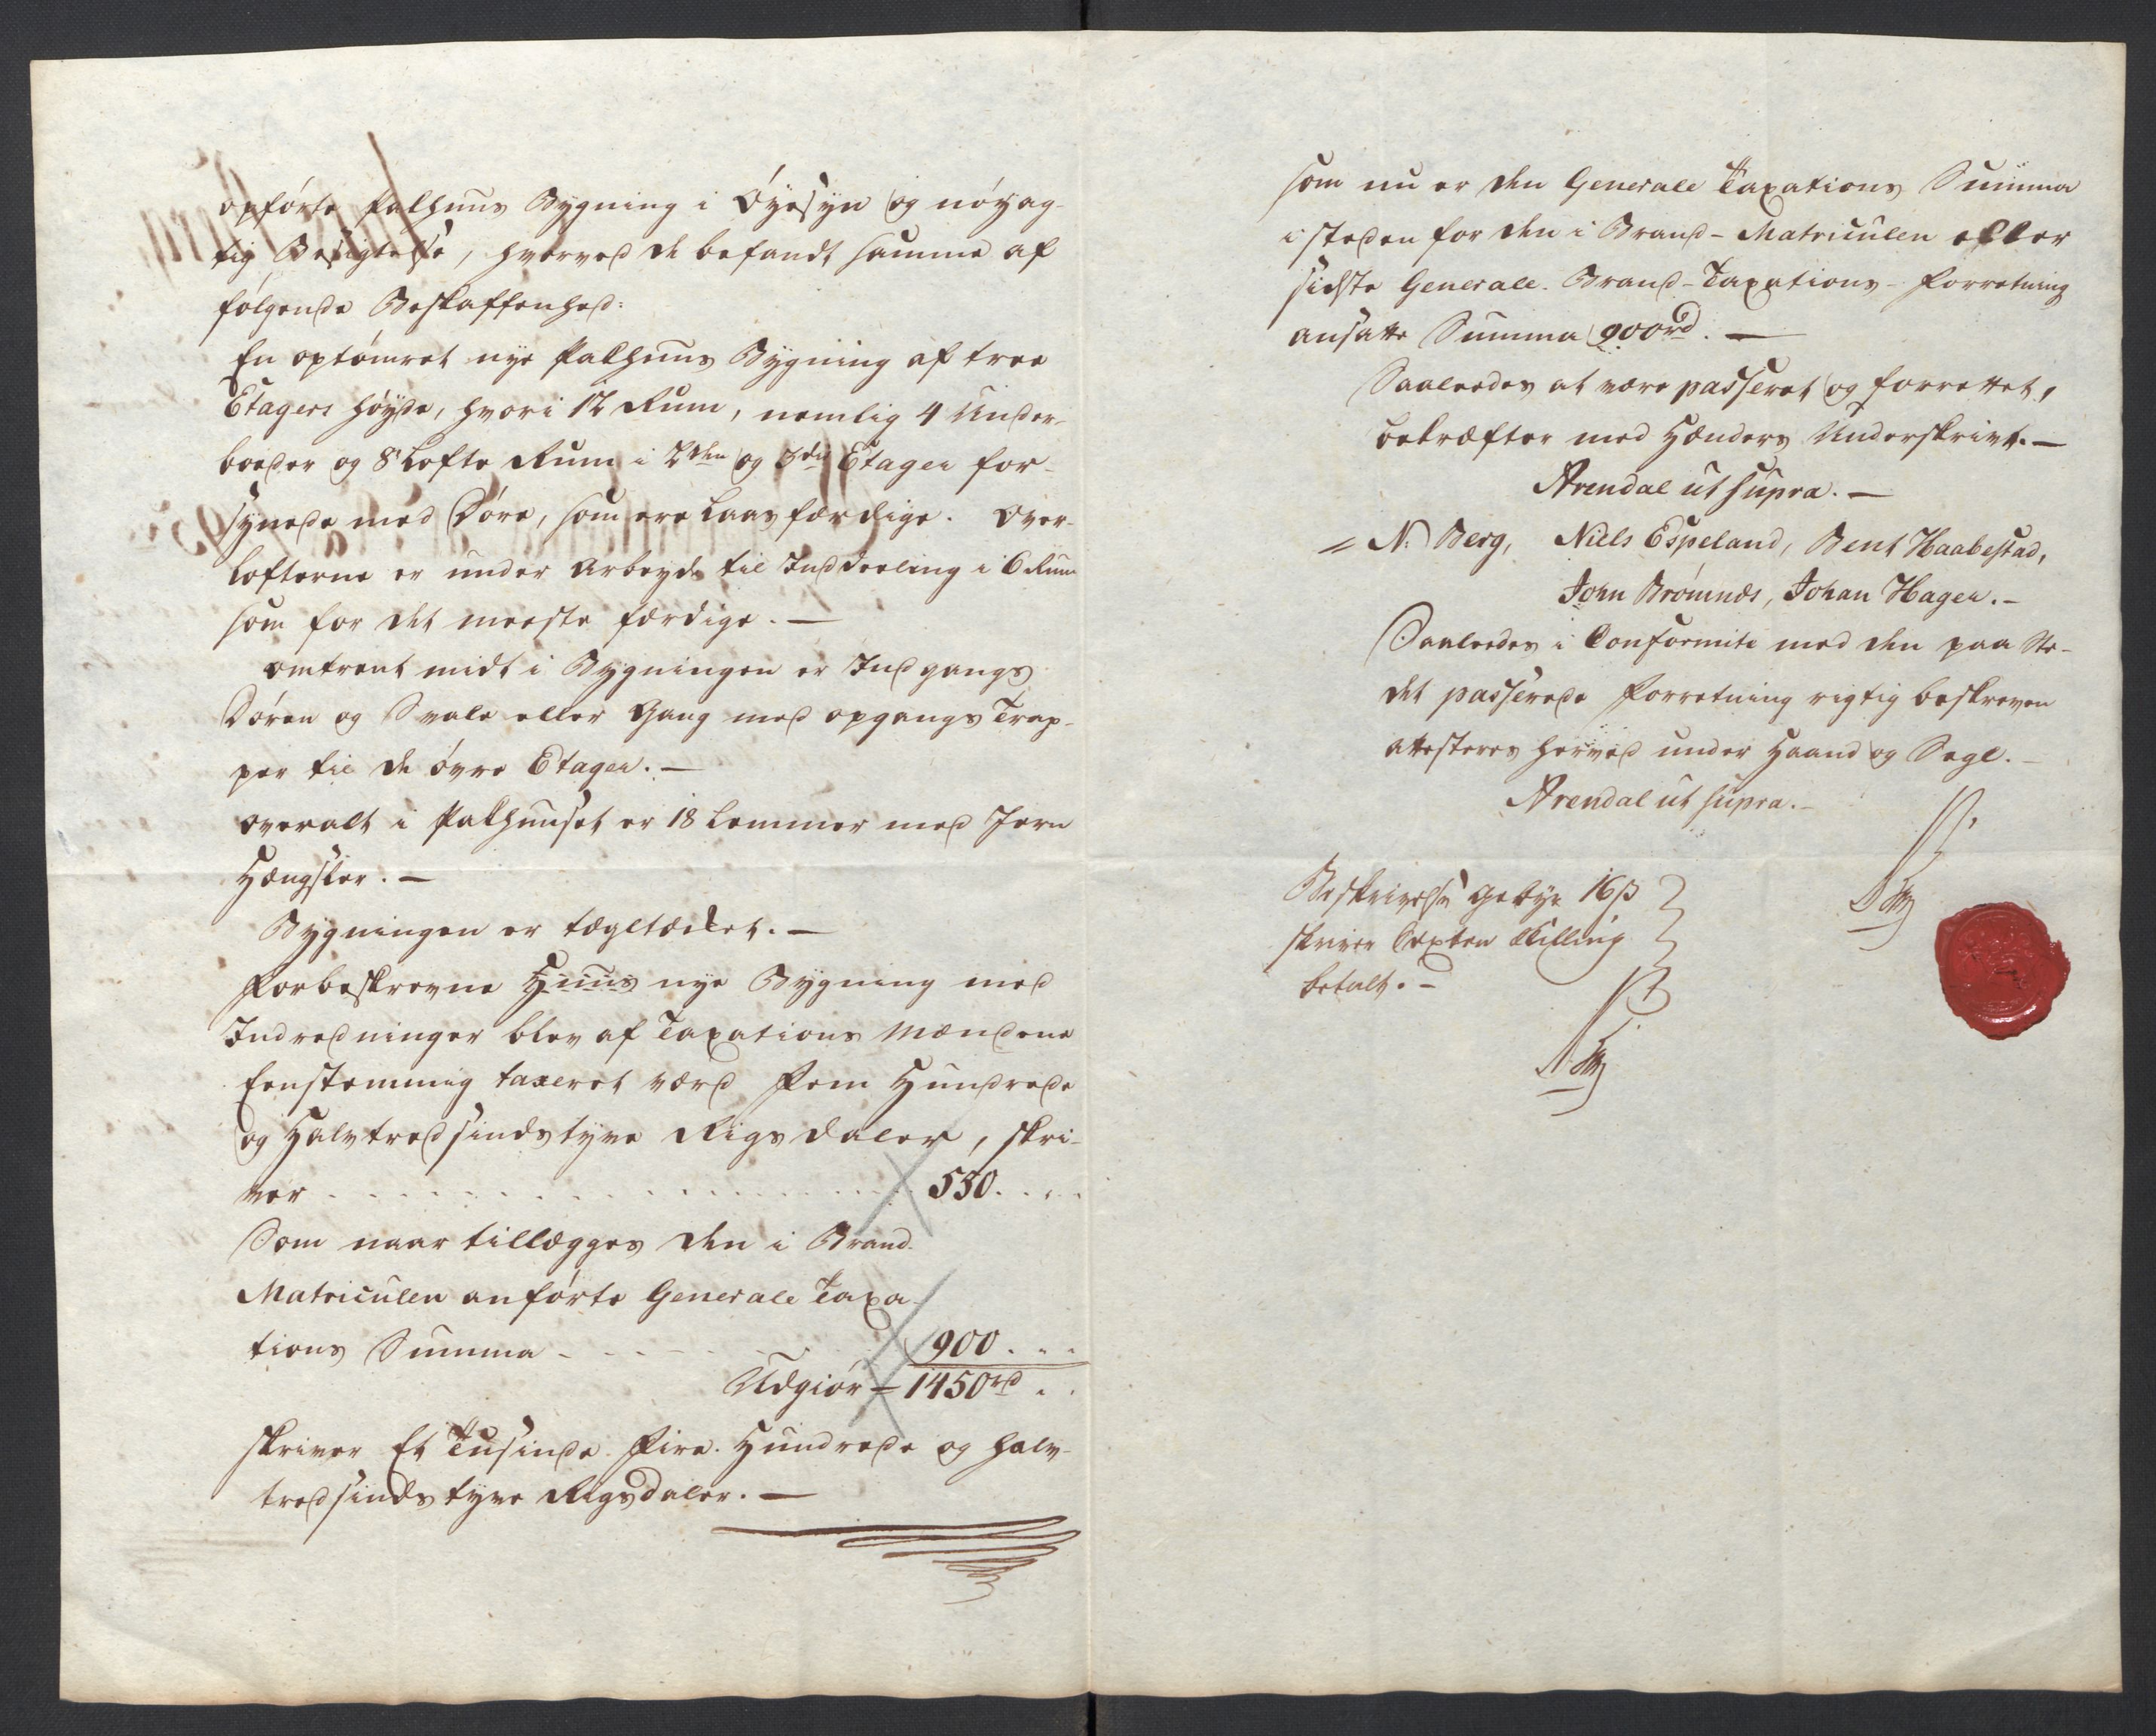 opførte Pakhuus Bygning i Øyesyn og nøyag-
tig Besigtelse, hvorved de befandt samme af
følgende Beskaffenhed:
En optømret nye Pakhuus Bygning af tree
Etagers Høyde, hvori 12 Rum, nemlig 4 Under-
boeder og 8 Lofte Rum i 2den og 3die Etager for-
synede med Døre, som ere Laas færdige. Over-
Lofterne er under Arbeyde til Inddeeling i 6 Rum
som for det meeste færdige. —
omtrent midt i Bygningen er Indgangs
Døren og Svale eller Gang med opgangs Trap-
per til de øvre Etager. —
overalt i Pakhuuset er 18 Lemmer med Jern
Hængsler. —
Bygningen er tægltækket. —
Forbeskrevne Huus nye Bygning med
Indredninger blev af Taxations Mændene
Eenstemmig taxeret værd Fem Hundrede
og Halvtredsindstyve Rigsdaler, skri-
ver . . . . . . . . . . 550. . .
Som naar tillægges den i Brand-
Matriculen anførte Generale Taxa-
tions Summa - - - - - 900. . .
Udgiør — 1450rd . .
skriver Et Tusinde Fire Hundrede og Halv-
tredsindstyve Rigsdaler. —
som nu er den Generale Taxations Summa
i steden for den i Brand-Matriculen efter
sidste Generale Brand-Taxations-Forretning
ansatte Summa 900rd. —
Saaledes at være passeret og forrettet,
bekræfter med Hænders Underskrivt. —
Arendal ut supra. —
N. Berg, Niels Espeland, Bent Haabestad,
John Brømnes, Johan Hagen. —
Saaledes i Conformite med den paa Ste-
det passerede Forretning rigtig beskreven
attesteres herved under Haand og Segl. —
Arendal ut supra. —
Beskrivelse Gebyr 16ß
skriver Sexten Skilling
betalt. —